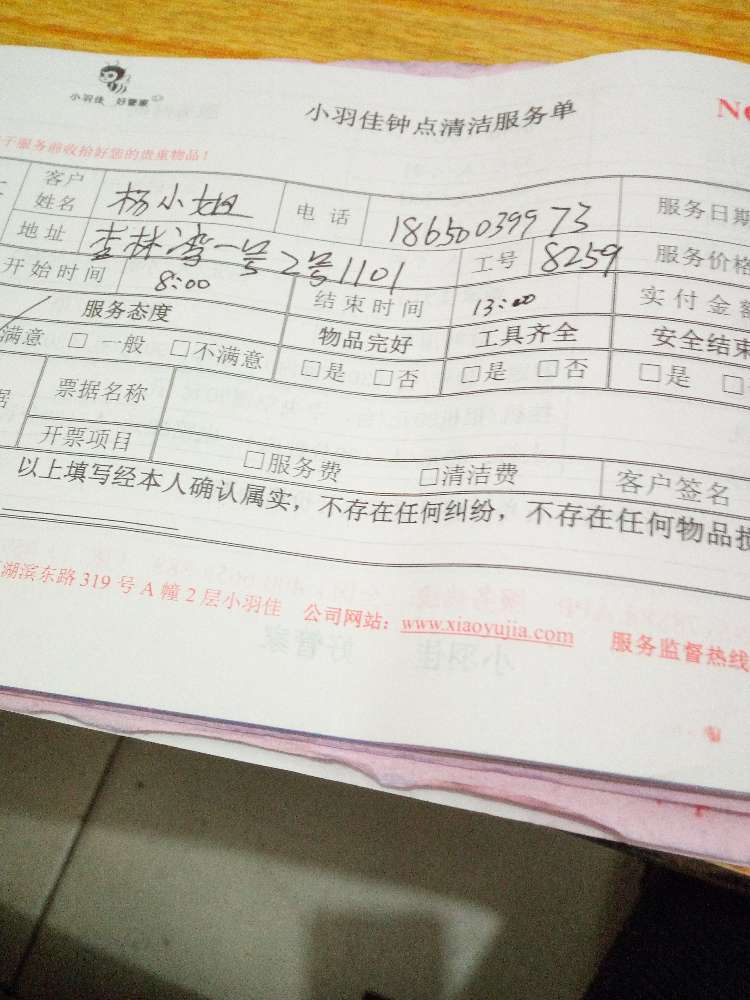 小羽佳 好管家
小羽佳钟点清洁服务单
于服务前收拾好您的贵重物品！
客户姓名 杨小姐 电话 18650039973 服务日期
地址 杏林湾一号2号1101 工号 8259 服务价格
开始时间 8:00 结束时间 13:00 实付金额
服务态度 物品完好 工具齐全 安全结束
满意 □一般 □不满意 □是 □否 □是 □否 □是 □
据 票据名称
开票项目 □服务费 □清洁费 客户签名
以上填写经本人确认属实，不存在任何纠纷，不存在任何物品损
湖滨东路319号A幢2层小羽佳 公司网站：www.xiaoyujia.com 服务监督热线